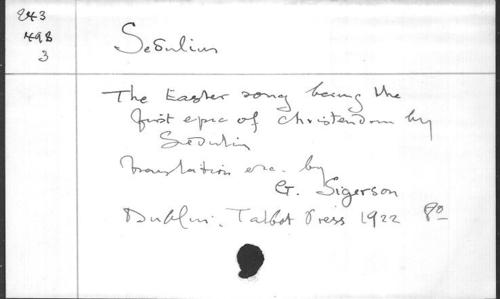 243
498
3
Sedulius
The Easter song being the
first epic of Christendom by
Sedulius
translation etc. by
G. Sigerson
Dublin: Talbot Press 1922 8º